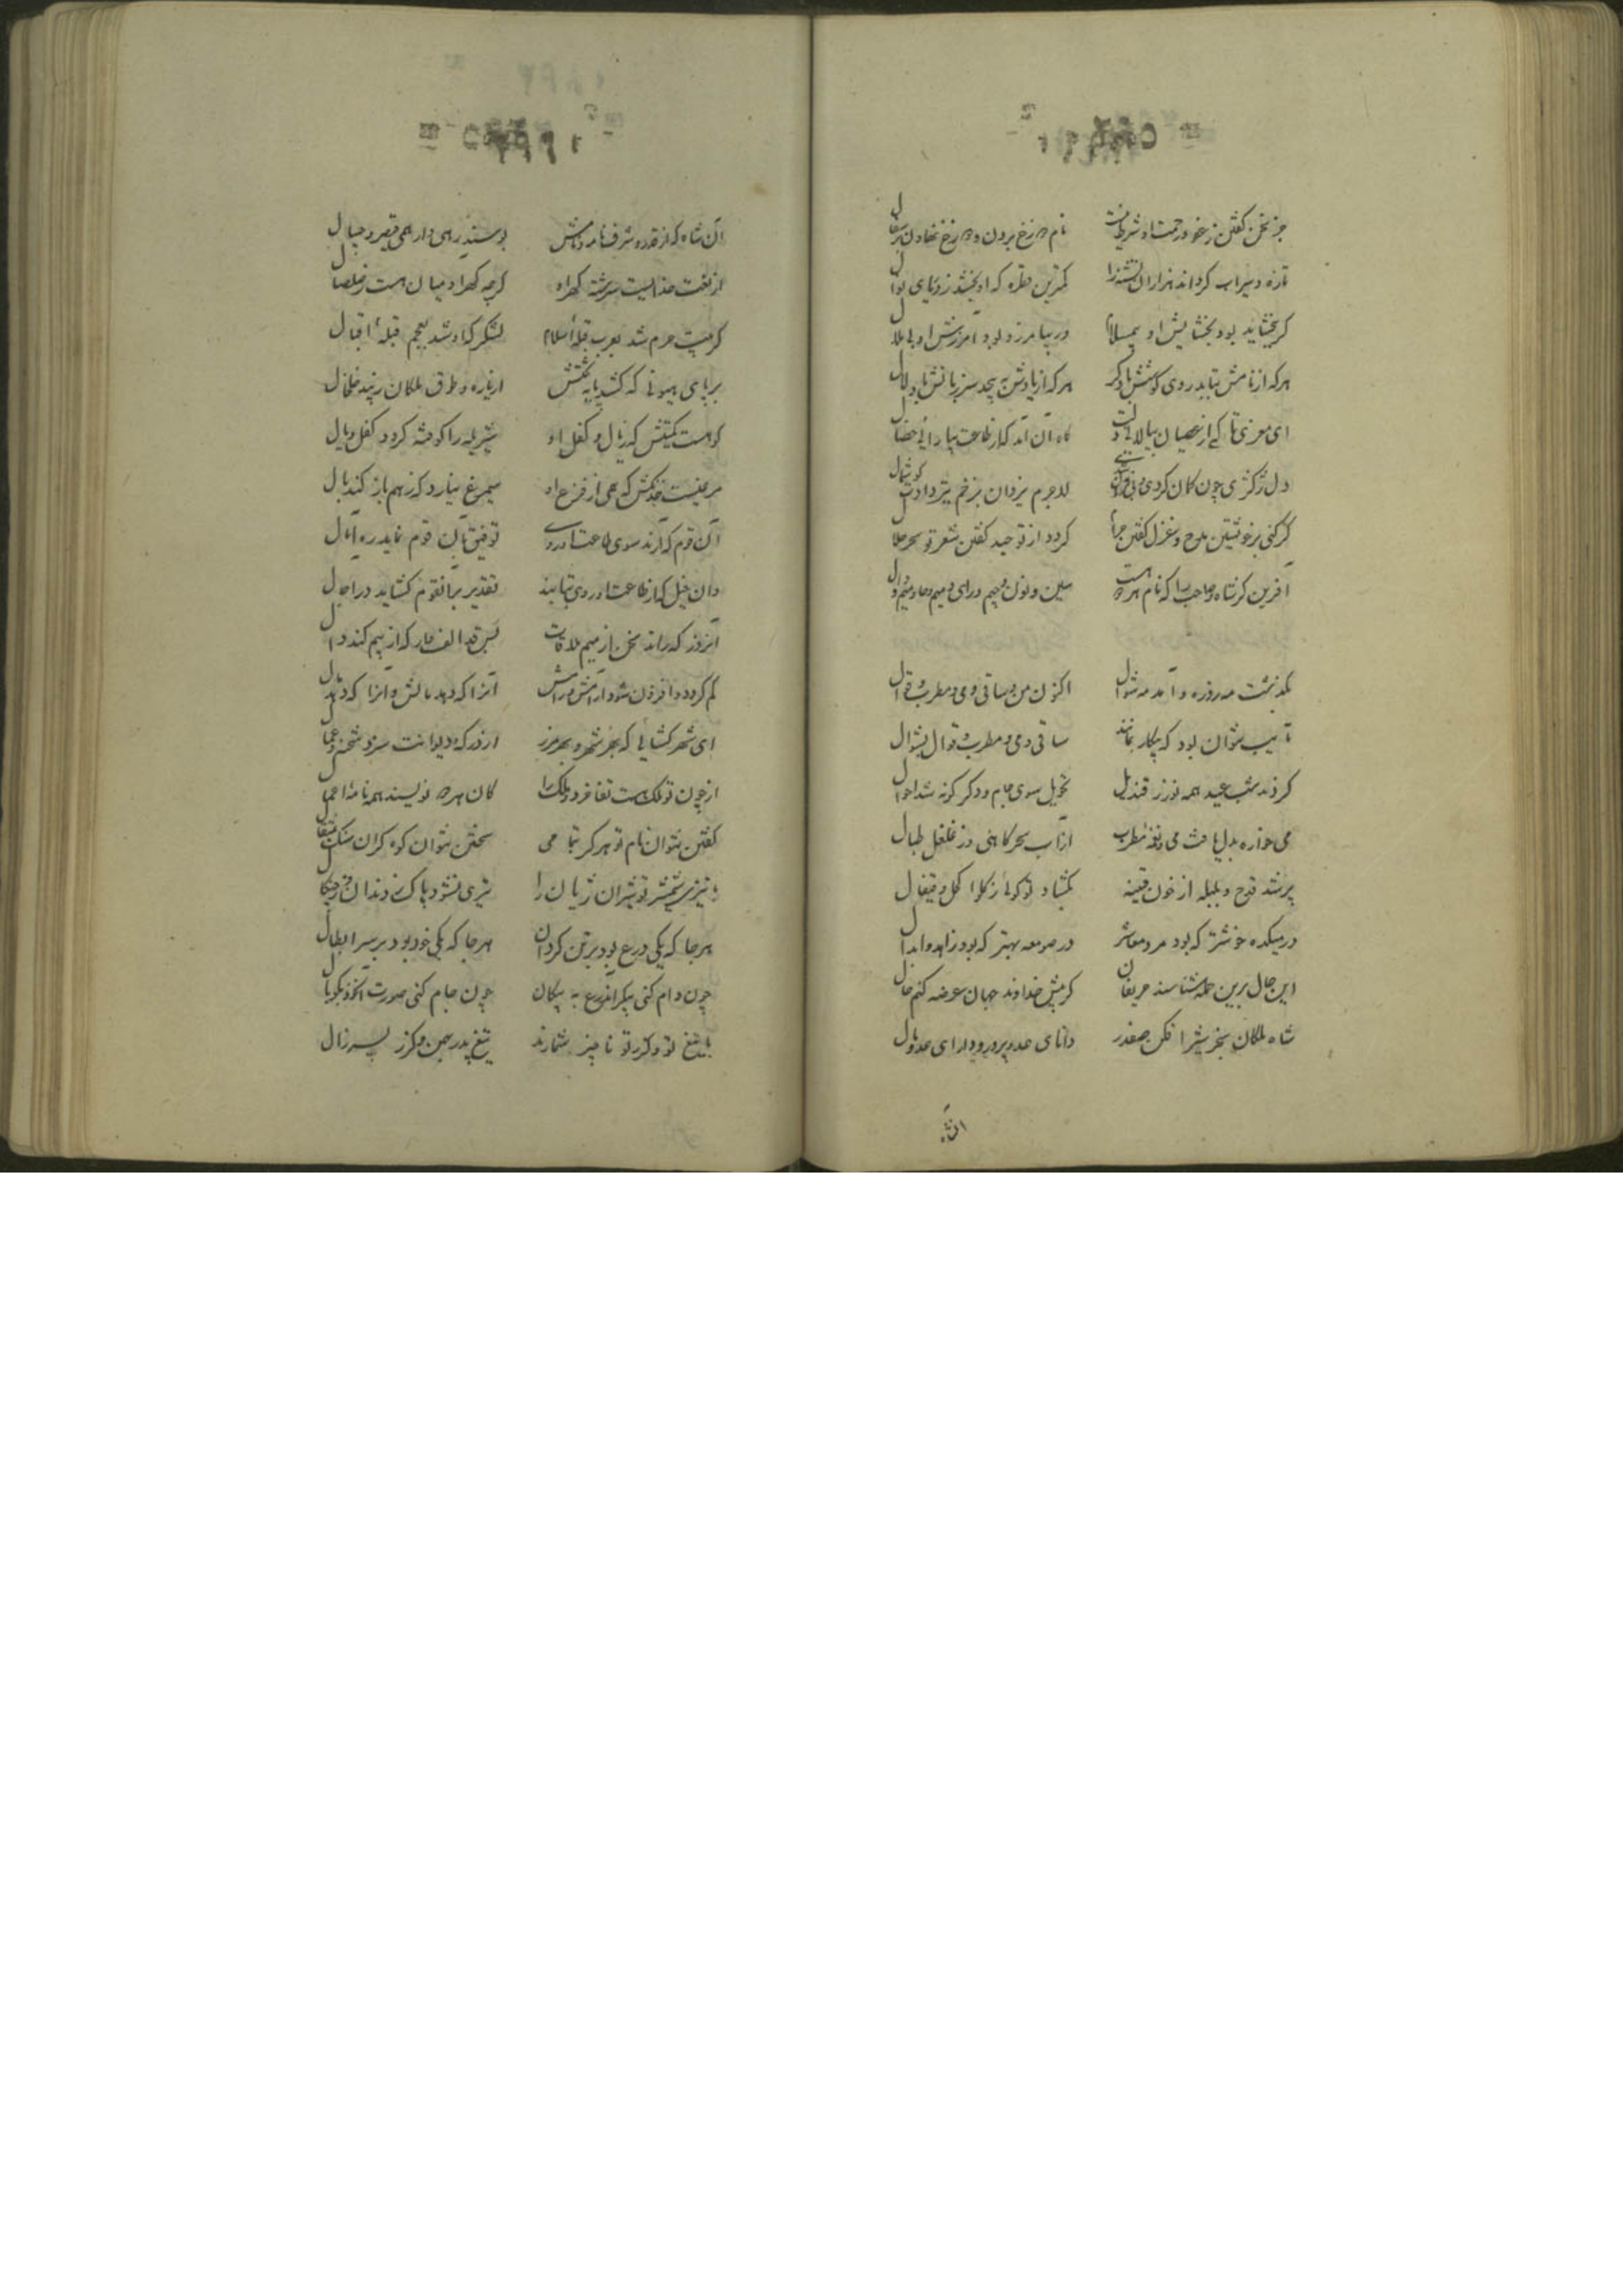 جز سخن گفتن ز عفو و رحمت او شرط نیست نام دوزخ بردن و دوزخ نهادن بر
تازه و سیراب گرداند هزاران تشنه را کمترین قطره که او بخشد ز دریای نوال
گر ببخشاید بود بخشایش او ور بیامرزد بود آمرزش او بی ملال
هرکه از نامش بتابد روی گوشش باد کر هرکه از یادش به پیچد سر زبانش باد لال
ای معزی تا کی از عصیان گاه آن آمد که از طاعت بیارائی خصال
دل ز کژی چون کمان کردی لاجرم یزدان بزخم تیر دادت گوشمال
گر کنی بر خویشتن مدح و غزل گفتن حرام گردد از توحید گفتن شعر تو سحر حلال
آفرین کن شاه و صاحب را که نام هر دو هست سین و نون و جیم و رای و میم و حا و میم و دال
بگذشت مه روزه و آمد مه شوال اکنون من و ساقی و می و مطرب و قوال
ساقی و می و مطرب و قوال بشوال
کردند شب عید همه نور ز قندیل تحویل سوی جام و دگرگونه شد احوال
می خواره بدل یافت می و نغمه مطرب از آب سحرگاهی وز غلغل طبال
پر شد قدح و بلبله از خون قنینه بگشاد تو گوئی
در میکده خوشتر که بود مرد معاشر در صومعه بهتر که بود زاهد و ابدال
این حال برین جمله شناسند حریفان گر پیش خداوند جهان عرضه کنم حال
شاه ملکان سنجر شیر افکن صفدر دانای عدو پرور و دارای عدو مال
آن شاه
آن شاه که از قدر و شرف نامه و نامش بوسند همی دار همی قیصر و چیپال
از نعمت خدائیست سرشته گهر او گرچه گهر آدمیان هست ز صلصال
گر بیت حرم شد بعرب قبله اسلام لشکرگه او شد بعجم قبله اقبال
بر پای هیونی که کشد پایه تختش از یاره و طوق ملکان زیبد خلخال
کوهست کمیتش که ز یال و کفل او شیر یله را کوفته گردد کفل و یال
مرغیست خدنگش که همی از فزع او سیمرغ نیارد که ز هم باز کند بال
آن قوم که آرند سوی طاعت او روی توفیق بآن قوم نماید ره آمال
وان خیل که از طاعت او روی بتابند تقدیر بر آنقوم گشاید در آجال
آنروز که راند سخن از میم ملاقات بس قد الف وار که از بیم کند دال
کم گردد و افزون شود آرامش و رامش آنرا که دهد مالش و آنرا که دهد مال
ای شهر گشائی که بهر شهر و بهر مرز از درگه دیوانت سزد شحنه و عمال
از چون تو ملک هست تفاخر دو ملک را کان هر دو نویسند همه نامه اعمال
گفتن نتوان نام تو هرگز بتمامی سختن نتوان کوه گران سنگ بمثقال
با تیزی شمشیر تو شیران ژیان را تیزی نشود پاک ز دندان و ز چنگال
هرجا که یکی درع بود بر تن گردان هرجا که یکی خود بود بر سر ابطال
چون دام کنی پیکر آندرع به پیکان چون جام کنی صورت آنخود بکوپال
با تیغ تو و گرز تو ناچیز شمارند تیغ پدر بهمن و گرز پسر زال